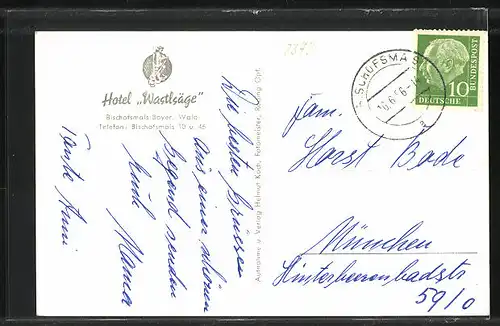 Hotel „Wastlsäge"
Bischofsmais Bayer. Wald
Telefon: Bischofsmais 10 u. 46
Die besten Grüsse
aus einer schönen
Gegend senden
Mama
Tante Anni
Aufnahme u. Verlag Helmut Koch, Fotomeister, Opf.
BISCHOFSMA
10.6.
a
10
DEUTSCHE
BUNDESPOST
Fam.
Horst Bode
München
59/0